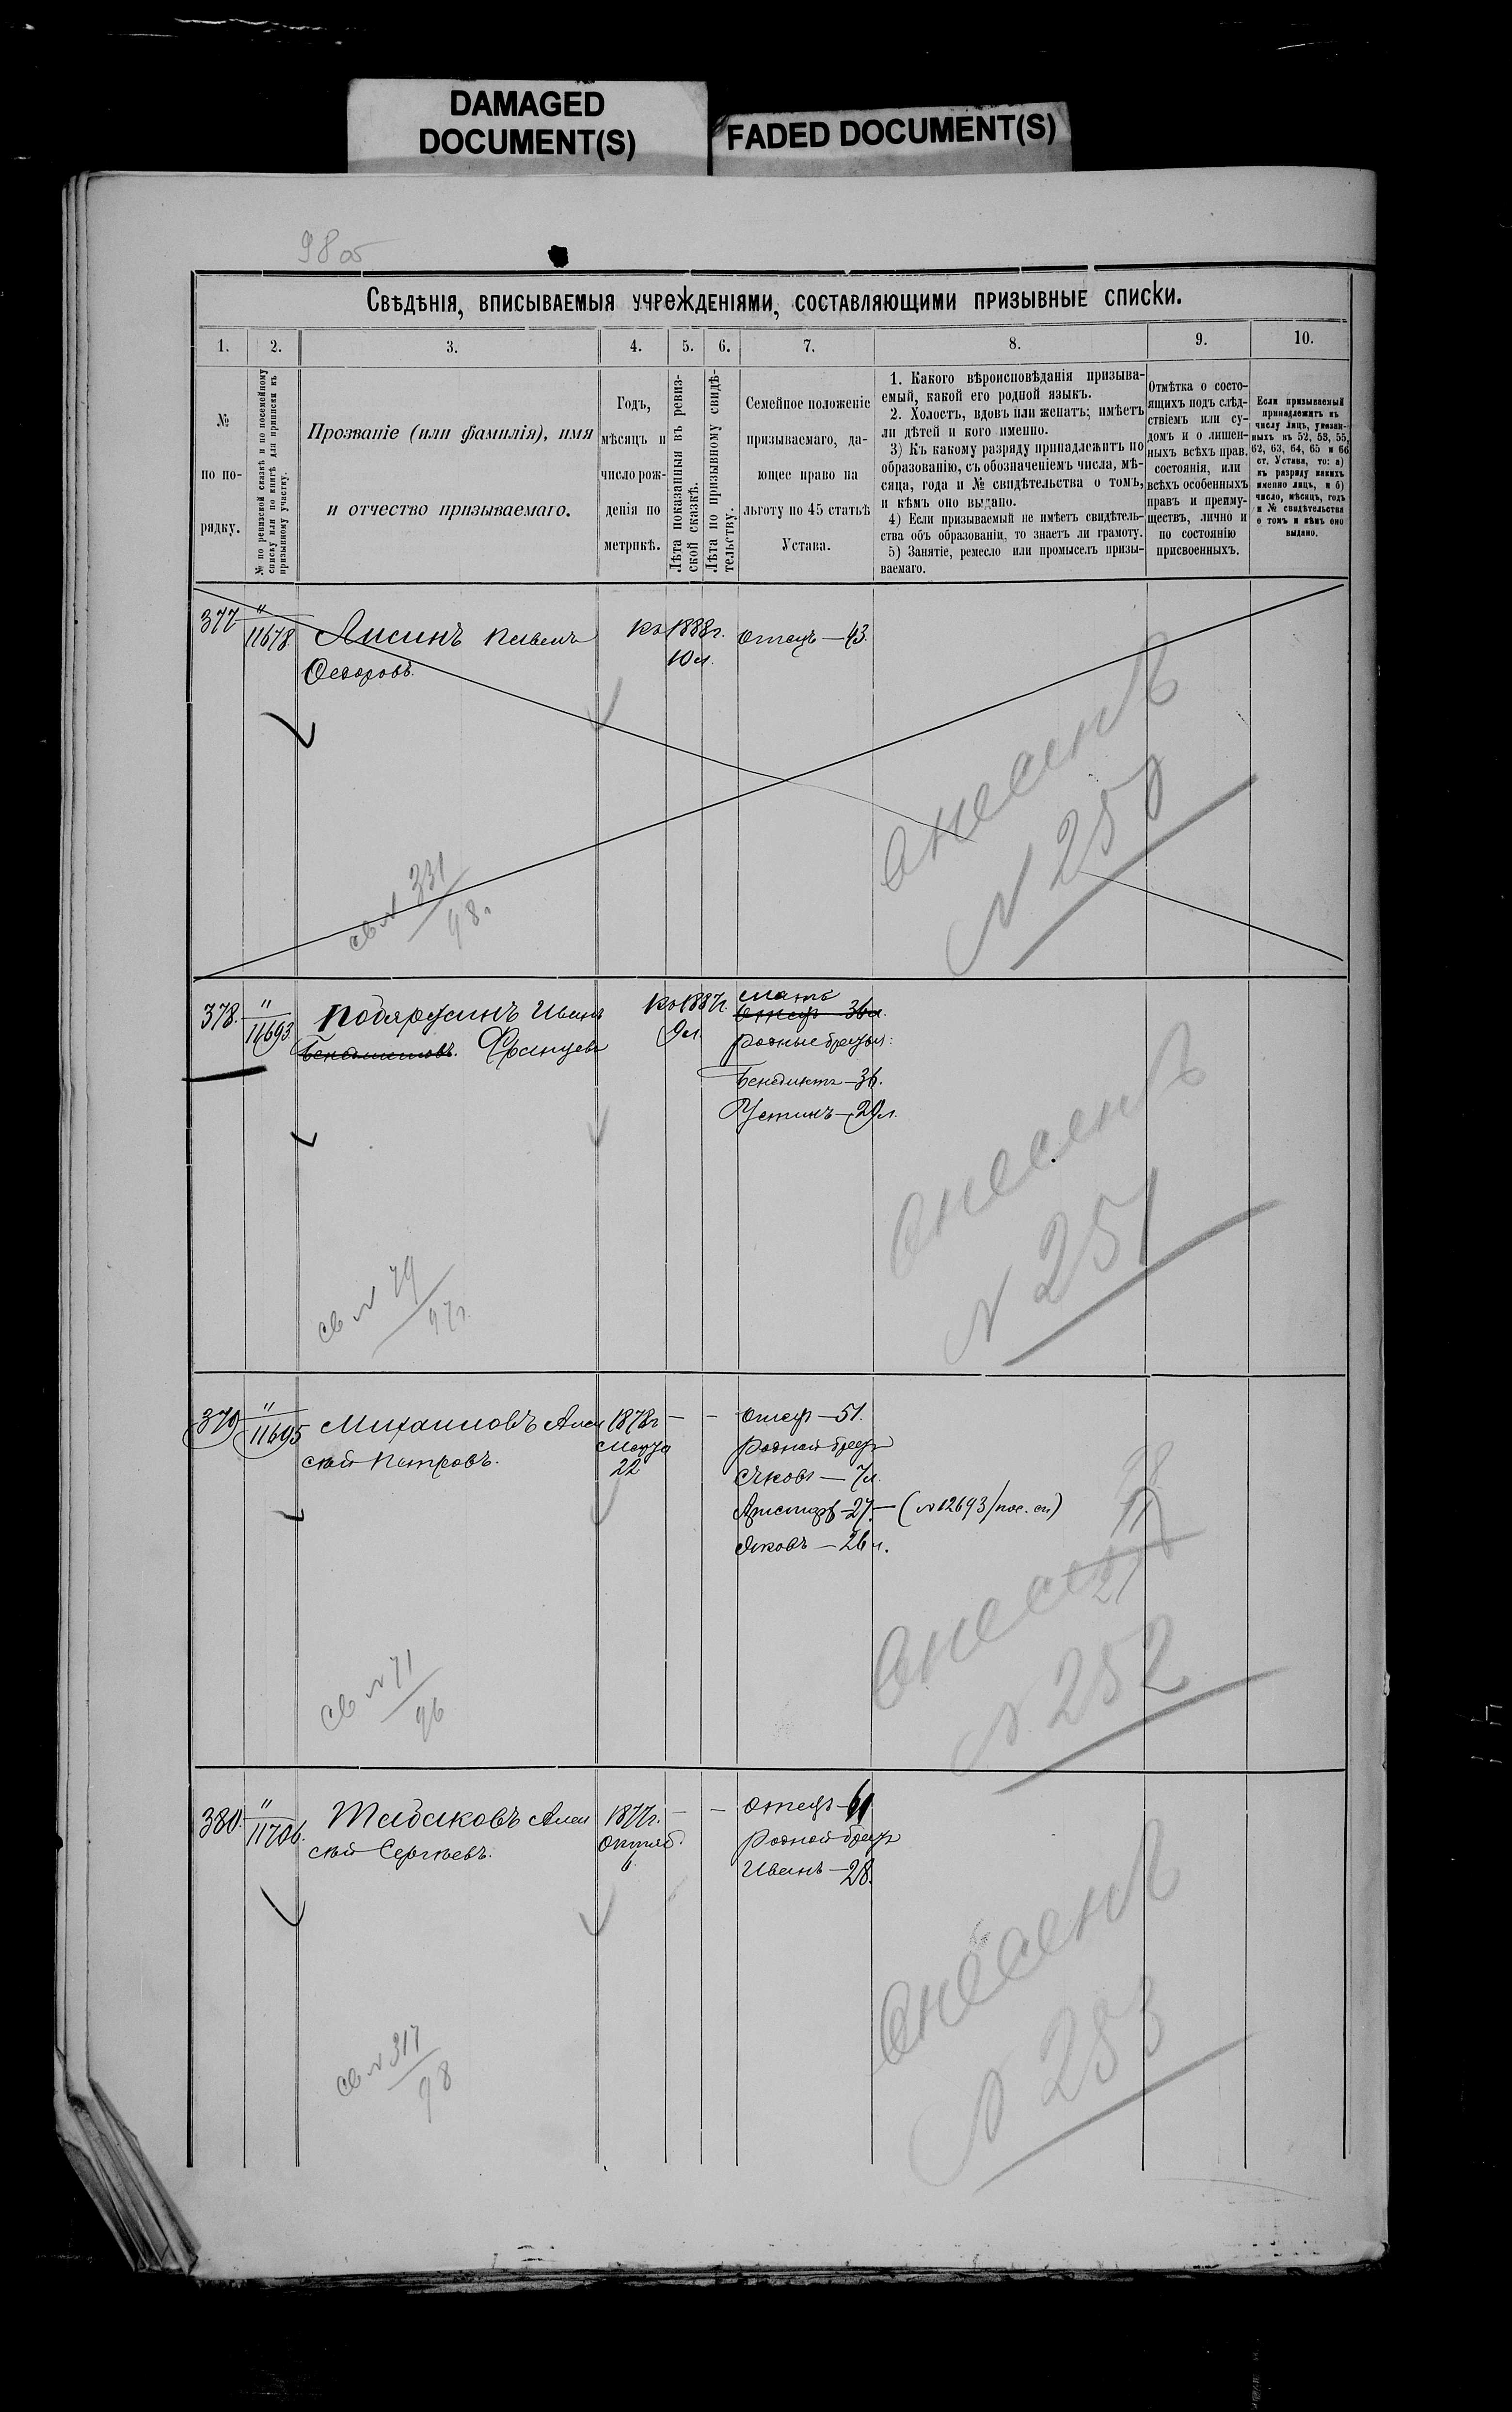 DAMAGED
DOCUMENT(S)
FADED DOCUMENT(S)
98
Свѣдѣнія, вписываемыя учрежденіями, составляющими призывные списки.
1. 2. 3. 4. 5. 6. 7. 8. 9. 10.
№
по по-
рядку.
№ по ревизской сказкѣ и по посемейному
списку или по книгѣ для приписки къ
призывному участку.
Прозваніе (или фамилія), имя
и отчество призываемаго.
Годъ,
мѣсяцъ и
число рож-
денія по
метрикѣ.
Лѣта показанныя въ ревиз-
ской сказкѣ.
Лѣта по призывному свидѣ-
тельству.
Семейное положеніе
призываемаго, да-
ющее право на
льготу по 45 статьѣ
Устава.
1. Какого вѣроисповѣданія призыва-
емый, какой его родной языкъ.
2. Холостъ, вдовъ или женатъ; имѣетъ
ли дѣтей и кого именно.
3) Къ какому разряду принадлежитъ по
образованію, съ обозначеніемъ числа, мѣ-
сяца, года и № свидѣтельства о томъ,
и кѣмъ оно выдано.
4) Если призываемый не имѣетъ свидѣтель-
ства объ образованіи, то знаетъ ли грамоту.
5) Занятіе, ремесло или промыселъ призы-
ваемаго.
Отмѣтка о состо-
ящихъ подъ слѣд-
ствіемъ или су-
домъ и о лишен-
ныхъ всѣхъ прав.
состоянія, или
всѣхъ особенныхъ
правъ и преиму-
ществъ, лично и
по состоянію
присвоенныхъ.
Если призываемый
принадлежитъ къ
числу лицъ, указан-
ныхъ въ 52, 53, 55,
62, 63, 64, 65 и 66
ст. Устава, то: а)
къ разряду какихъ
именно лицъ, и б)
число, мѣсяцъ, годъ
и № свидѣтельства
о томъ и кѣмъ оно
выдано.
377 " 11678. Лисинъ Павелъ Къ 1888г. отецъ — 43.
Федоровъ. 10 л.
внесенъ
№ 250
св № 331
98 г.
378. " 11693. Подярусинъ Иванъ Къ 1887г. мать
Бенедиктовъ. Францевъ 9 л. Отецъ 36 л.
родные братья:
Бенедиктъ — 36.
Устинъ — 29 л.
внесенъ
№ 251
св № 79
97г.
379 " 11695 Михаиловъ Алек 1878г — — Отецъ — 51.
сѣй Петровъ. Марта родной братъ
22 Яковъ — 7 л.
Аристархъ — 27. — (№ 12693/пос. сп)
Яковъ — 26 л.
внесенъ
№ 252
св № 71
96
380. " 11706. Табаковъ Алек 1877г. — — Отецъ — 61
сѣй Сергѣевъ. Октяб. родной братъ
6. Иванъ — 28.
внесенъ
№ 253
св № 317
98